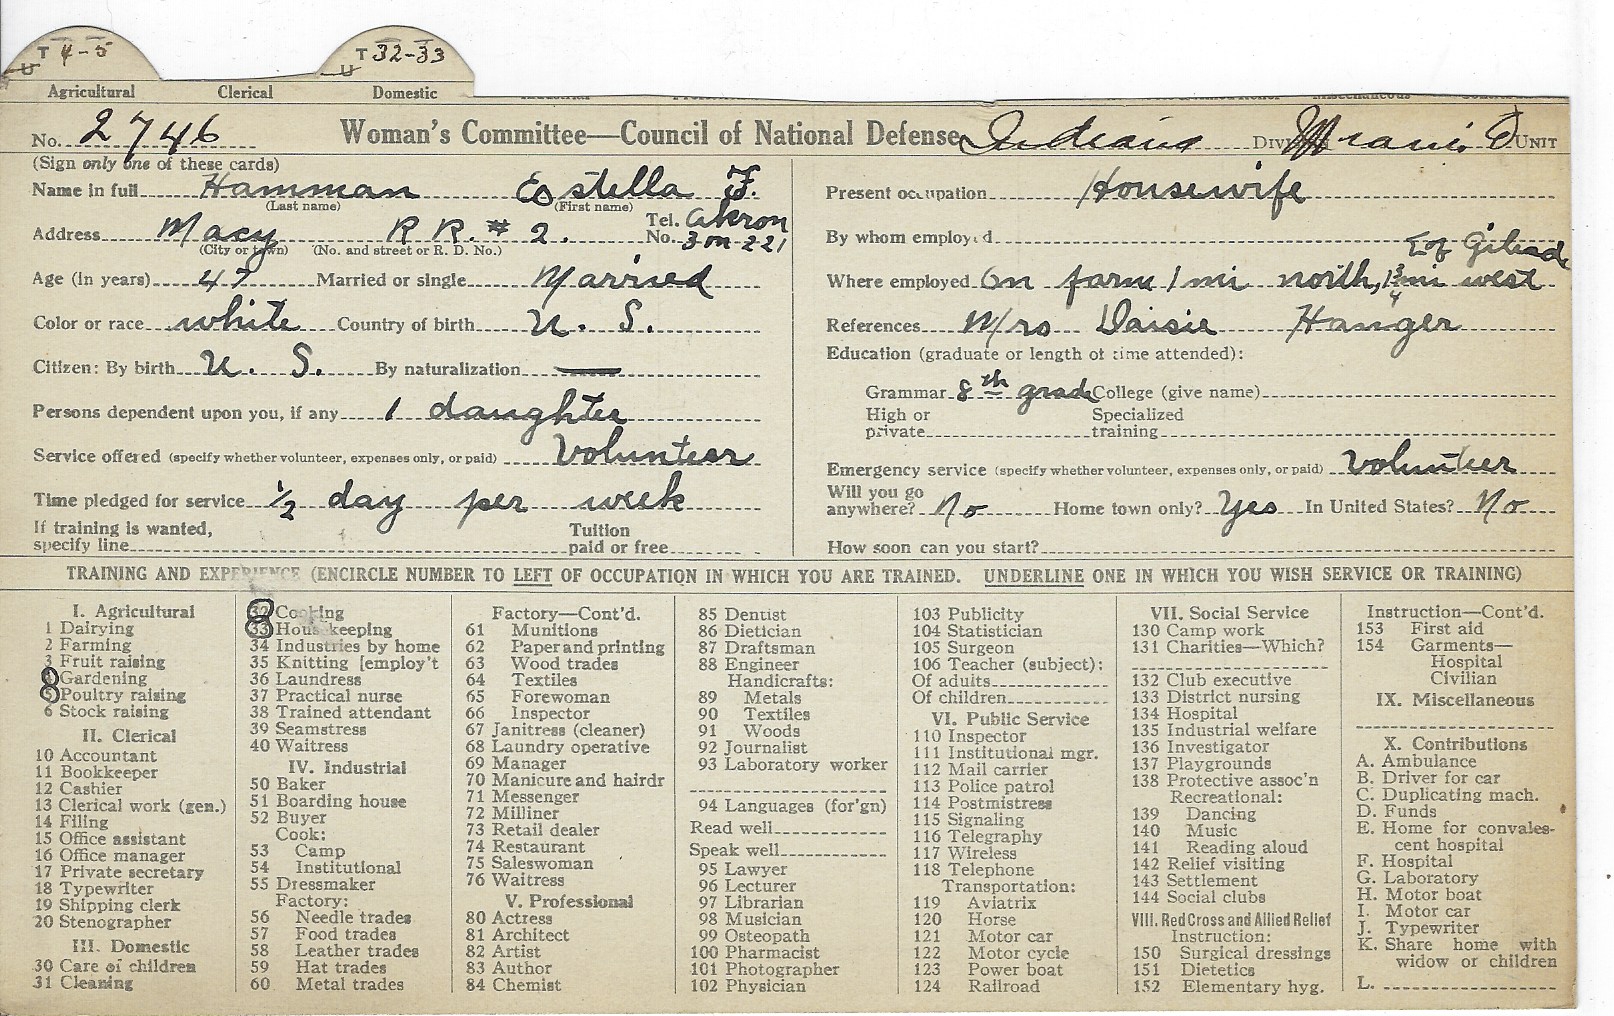 T 4-5 T 32-33
U U
Agricultural Clerical Domestic
No. 2746 Woman's Committee—Council of National Defense Indiana Division Miami Co UNIT
(Sign only one of these cards)
Name in full Hamman Estella F.
(Last name) (First name)
Address Macy R R. # 2. Tel. No. Akron 3 on 221
(City or town) (No. and street or R. D. No.)
Age (in years) 47 Married or single Married
Color or race white Country of birth U. S.
Citizen: By birth U. S. By naturalization —
Persons dependent upon you, if any 1 daughter
Service offered (specify whether volunteer, expenses only, or paid) Volunteer
Time pledged for service 1/2 day per week
If training is wanted, specify line Tuition paid or free
Present occupation Housewife
By whom employed
Where employed On farm 1 mi north, 1 3/4 mi west of Gilead
References Mrs Daisie Hanger
Education (graduate or length of time attended):
Grammar 8th grade College (give name)
High or private Specialized training
Emergency service (specify whether volunteer, expenses only, or paid) Volunteer
Will you go anywhere? No Home town only? Yes In United States? No
How soon can you start?
TRAINING AND EXPERIENCE (ENCIRCLE NUMBER TO LEFT OF OCCUPATION IN WHICH YOU ARE TRAINED. UNDERLINE ONE IN WHICH YOU WISH SERVICE OR TRAINING)
I. Agricultural
1 Dairying
2 Farming
3 Fruit raising
4 Gardening
5 Poultry raising
6 Stock raising
II. Clerical
10 Accountant
11 Bookkeeper
12 Cashier
13 Clerical work (gen.)
14 Filing
15 Office assistant
16 Office manager
17 Private secretary
18 Typewriter
19 Shipping clerk
20 Stenographer
III. Domestic
30 Care of children
31 Cleaning
32 Cooking
33 Housekeeping
34 Industries by home
35 Knitting [employ't
36 Laundress
37 Practical nurse
38 Trained attendant
39 Seamstress
40 Waitress
IV. Industrial
50 Baker
51 Boarding house
52 Buyer
Cook:
53 Camp
54 Institutional
55 Dressmaker
Factory:
56 Needle trades
57 Food trades
58 Leather trades
59 Hat trades
60 Metal trades
Factory—Cont'd.
61 Munitions
62 Paper and printing
63 Wood trades
64 Textiles
65 Forewoman
66 Inspector
67 Janitress (cleaner)
68 Laundry operative
69 Manager
70 Manicure and hairdr
71 Messenger
72 Milliner
73 Retail dealer
74 Restaurant
75 Saleswoman
76 Waitress
V. Professional
80 Actress
81 Architect
82 Artist
83 Author
84 Chemist
85 Dentist
86 Dietician
87 Draftsman
88 Engineer
Handicrafts:
89 Metals
90 Textiles
91 Woods
92 Journalist
93 Laboratory worker
94 Languages (for'gn)
Read well
Speak well
95 Lawyer
96 Lecturer
97 Librarian
98 Musician
99 Osteopath
100 Pharmacist
101 Photographer
102 Physician
103 Publicity
104 Statistician
105 Surgeon
106 Teacher (subject):
Of adults
Of children
VI. Public Service
110 Inspector
111 Institutional mgr.
112 Mail carrier
113 Police patrol
114 Postmistress
115 Signaling
116 Telegraphy
117 Wireless
118 Telephone
Transportation:
119 Aviatrix
120 Horse
121 Motor car
122 Motor cycle
123 Power boat
124 Railroad
VII. Social Service
130 Camp work
131 Charities—Which?
132 Club executive
133 District nursing
134 Hospital
135 Industrial welfare
136 Investigator
137 Playgrounds
138 Protective assoc'n
Recreational:
139 Dancing
140 Music
141 Reading aloud
142 Relief visiting
143 Settlement
144 Social clubs
VIII. Red Cross and Allied Relief
Instruction:
150 Surgical dressings
151 Dietetics
152 Elementary hyg.
Instruction—Cont'd.
153 First aid
154 Garments—
Hospital
Civilian
IX. Miscellaneous
X. Contributions
A. Ambulance
B. Driver for car
C. Duplicating mach.
D. Funds
E. Home for convales-
cent hospital
F. Hospital
G. Laboratory
H. Motor boat
I. Motor car
J. Typewriter
K. Share home with
widow or children
L.